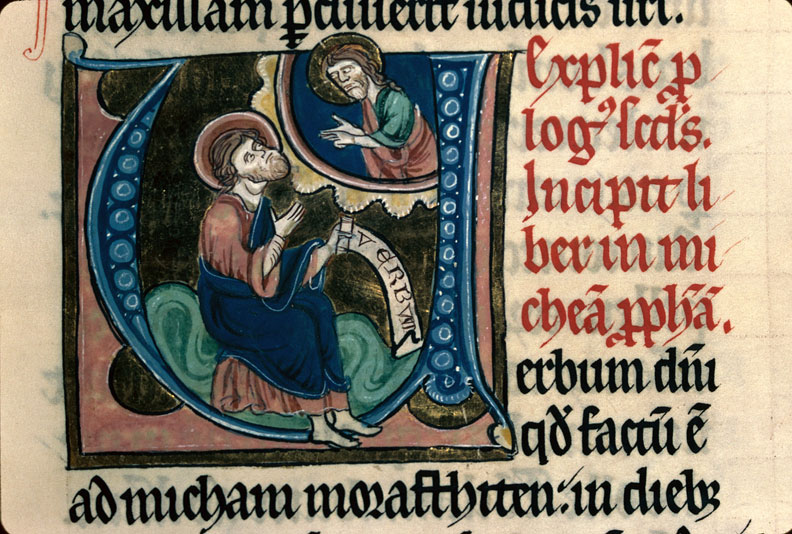 maxillam percutient iudicis isrl.
Explic̄ p
log⁹ scd̄s.
Incipit li
ber in mi
cheā ꝓph̄ā.
VERBUM
erbum dn̄i
qd̄ factū ē
ad micham morasthiten: in dieb⁊